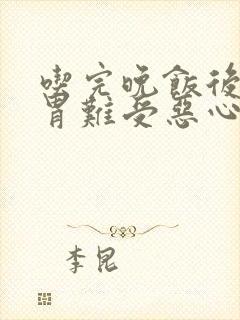 喫完晚飯後
胃難受惡心
李昆